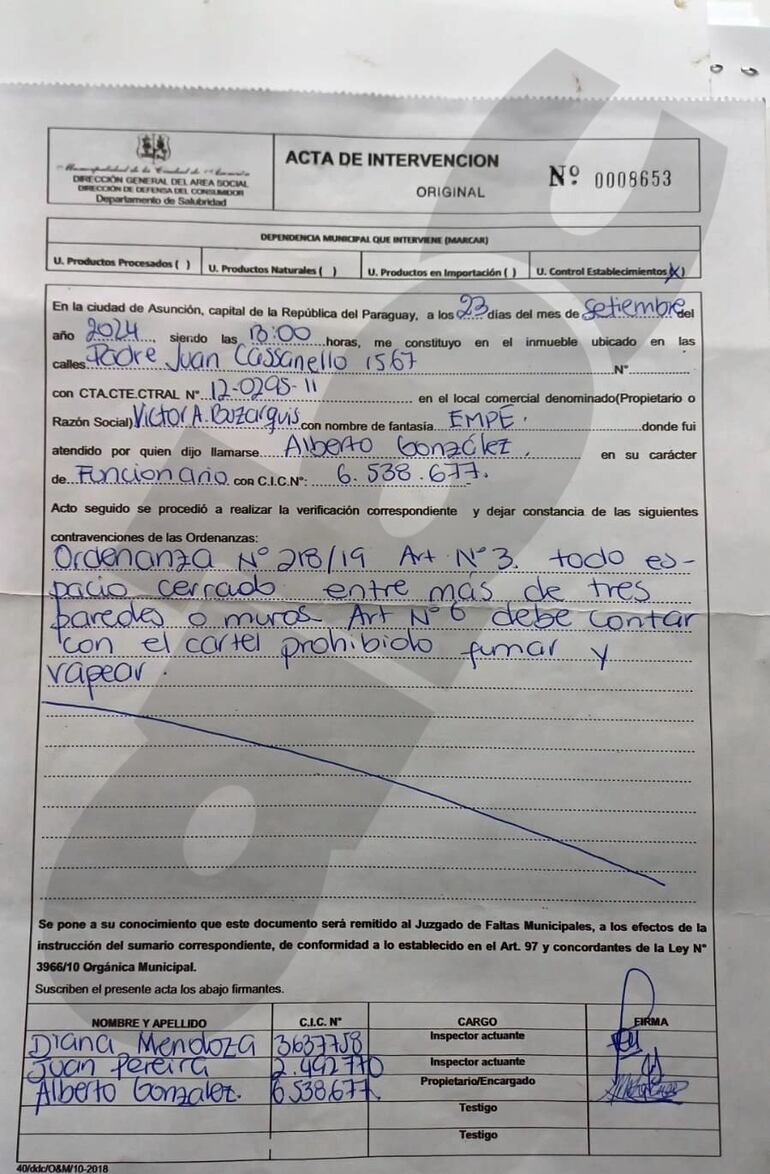 Municipalidad de la Ciudad de Asunción
DIRECCIÓN GENERAL DEL AREA SOCIAL
DIRECCIÓN DE DEFENSA DEL CONSUMIDOR
Departamento de Salubridad
ACTA DE INTERVENCION
ORIGINAL
Nº 0008653
DEPENDENCIA MUNICIPAL QUE INTERVIENE (MARCAR)
U. Productos Procesados ( ) U. Productos Naturales ( ) U. Productos en Importación ( ) U. Control Establecimientos (X)
En la ciudad de Asunción, capital de la República del Paraguay, a los 23 días del mes de Setiembre del
año 2024, siendo las 13:00 horas, me constituyo en el inmueble ubicado en las
calles Padre Juan Cassanello 1567 N°
con CTA.CTE.CTRAL N° 12-0295-11 en el local comercial denominado(Propietario o
Razón Social) Victor A. Bozarquis con nombre de fantasía EMPE. donde fui
atendido por quien dijo llamarse Alberto González, en su carácter
de Funcionario con C.I.C.N°: 6.538.677.
Acto seguido se procedió a realizar la verificación correspondiente y dejar constancia de las siguientes
contravenciones de las Ordenanzas:
Ordenanza N° 218/19 Art N° 3. todo es-
pacio cerrado entre más de tres
paredes o muros Art N° 6 debe contar
con el cartel prohibido fumar y
vapear.
Se pone a su conocimiento que este documento será remitido al Juzgado de Faltas Municipales, a los efectos de la
instrucción del sumario correspondiente, de conformidad a lo establecido en el Art. 97 y concordantes de la Ley N°
3966/10 Orgánica Municipal.
Suscriben el presente acta los abajo firmantes.
NOMBRE Y APELLIDO C.I.C. N° CARGO FIRMA
Diana Mendoza 3637758 Inspector actuante
Juan Pereira 2.492770 Inspector actuante
Alberto Gonzalez. 6538.677 Propietario/Encargado
Testigo
Testigo
40/ddc/O&M/10-2018
abc